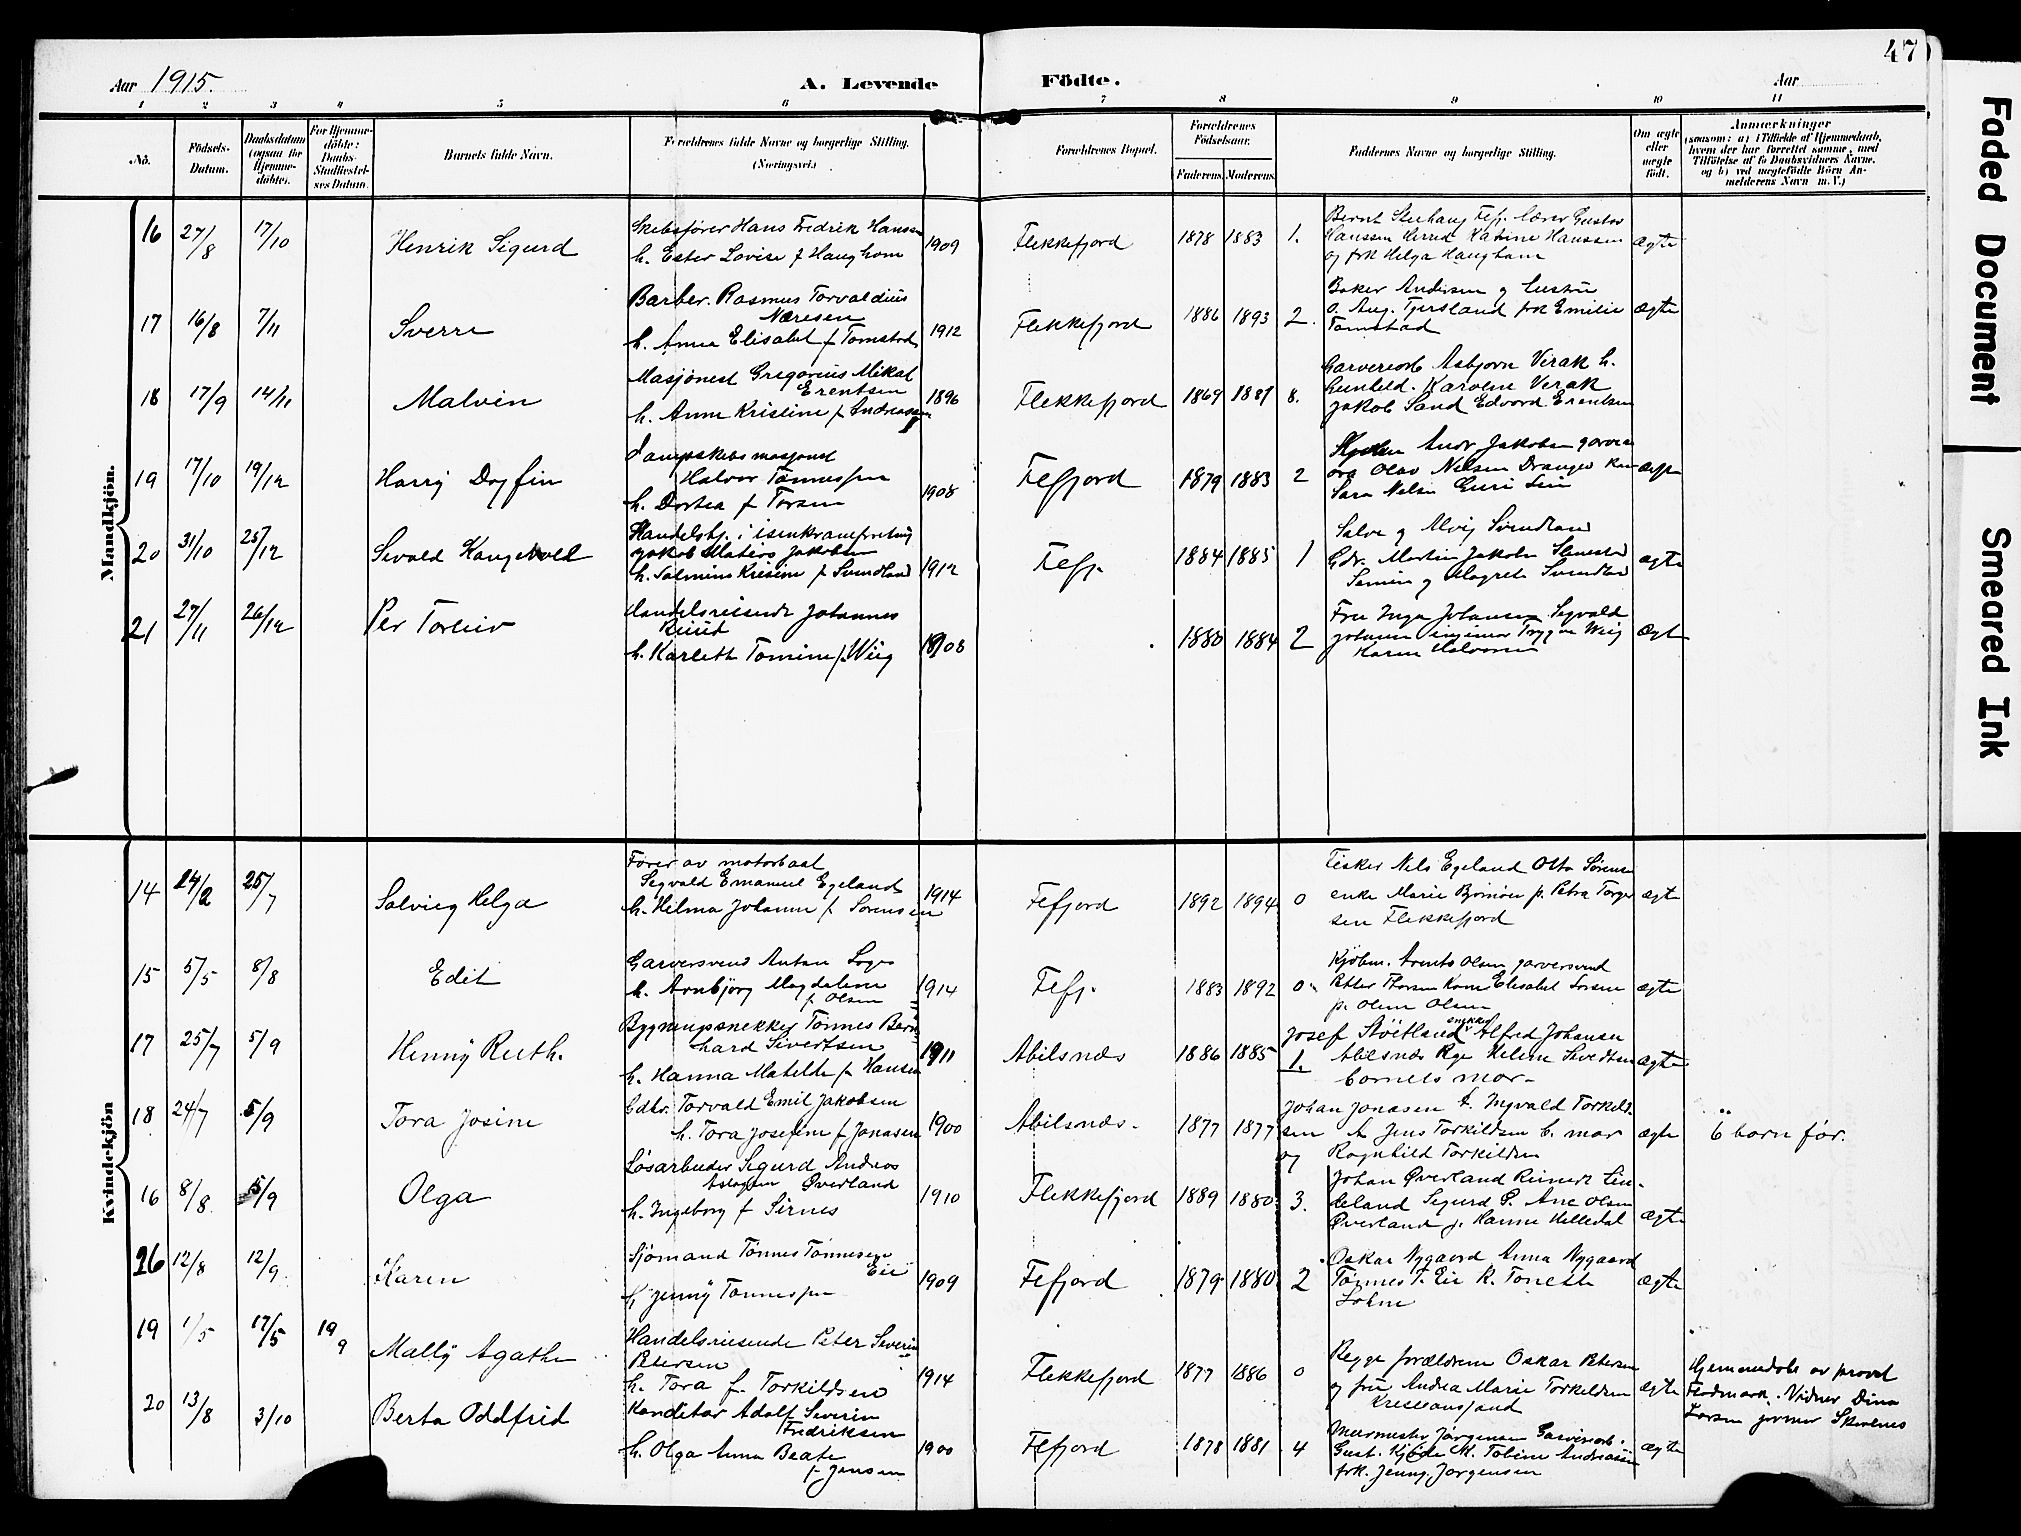 47
Aar 1915.
A. Levende Födte.
Aar
1 2 3 4 5 6 7 8 9 10 11
No.
Födsels-
Datum.
Daabsdatum
(ogsaa for
Hjemme-
döbte).
For Hjemme-
döbte:
Daabs-
Stadfæstel-
ses Datum.
Barnets fulde Navn.
Forældrenes fulde Navne og borgerlige Stilling.
(Næringsvei.)
Forældrenes Bopæl.
Forældrenes
Födselsaar.
Faderens. Moderens.
Faddernes Navne og borgerlige Stilling.
Om ægte
eller
uægte
födt.
Anmærkninger
(saasom: a) i Tilfælde af Hjemmedaab,
hvem der har forrettet samme, med
Tilföielse af to Daabsvidners Navne,
og b) ved uægtefödte Börn An-
melderens Navn m. V.)
Mandkjön.
16 27/8 17/10 Henrik Sigurd
Skibsfører Hans Fredrik Hanssen
h. Ester Lovise f Haughom 1909
Flekkefjord 1878 1883 1.
Bernt Stenhaug Fefj. lærer Gustav
Hanssen Herred Katrine Hanssen
og frk Helga Haugham
ægte
17 16/8 7/11 Sverre
Barber. Rasmus Torvaldius
Næresen
h. Anna Elisabet f Tomstad 1912
Flekkefjord 1886 1893 2.
Baker Andersen og hustru
O. Aug. Tjersland frk Emilie
Tomstad
ægte
18 17/9 14/11 Malvin
Masjønest Gregorius Mikal
Erentsen
h. Anne Kristine f Andreassen 1896
Flekkefjord 1869 1881 8.
Garveriarb Asbjørn Virak h.
Gunhild. Karoline Virak
Jakob Sand Edvard Erentsen
19 17/10 19/12 Harry Dagfin
Dampskibs masjonist
Halvor Tønnessen
h. Dortea f Torsen 1908
Fefjord 1879 1883 2
Andr Jakobsen garveri
arb Olav Nilsen Dranger
Sara Nelsen Guri
ægte
20 31/10 25/12 Sevald Haugevold
Handelsbj. i isenkramforretning
Jakob Matias Jakobsen
h. Salmine Kristine f Svindland 1912
Fefj. 1884 1885 1
Salve og Alvig Svindland
Gdr. Martin Jakobs
og Magrete Svindland
ægte
21 27/11 26/12 Per Torleiv
Handelsreisende Johannes
Ruud
h. Karleth Tomine f. Wiig 1908
1880 1884 2
Fru Inga Johansen Sigvald
Johansen ingeniør Trygve Wiig
Karen Halvorsen
ægte
Kvindekjön
14 24/2 25/7 Solvieg Helga
Fører av motorbaat
Segvald Emanuel Egeland
h. Hilma Johanne f. Sørensen 1914
Fefjord 1892 1894 0
Fisker Nils Egeland Otto Sørensen
enke Marie Bjørnøe p. Petra Torger
sen Flekkefjord
ægte
15 5/5 8/8 Edit
Garversvend Anton Loga
h. Arnbjørg Magdalene
f Olsen 1914
Fefj. 1883 1892 0
Kjøbm. Arents Olsen garversvend
Petter Thorsen Kone Elisabet Lorsen
p. Oline Olsen
ægte
17 25/7 5/9 Henny Ruth.
Bygningssnekker Tønnes Bern
hard Sivertsen
h. Hanna Matilde f Hansen 1911
Abilsnæs 1886 1885 1.
Josef Støitland snekker Alfred Johansen
Abilsnæs Pge Helene Sivertsen
barnets mor-
ægte
18 24/7 5/9 Tora Josine
Gdbr. Torvald Emil Jakobsen
h. Tora Josefine f Jonasen 1900
Abilsnæs. 1877 1877
Johan Jonasen A. Ingvald Torkild
sen A Jens Torkildsen b. mor
og Ragnhild Torkildsen
ægte
6 barn før.
16 8/8 5/9 Olga
Løsarbeider Sigurd Andreas
Aslagsen Øverland
h. Ingeborg f Sirnes 1910
Flekkefjord 1889 1880 3.
Johan Øverland Reinert Lin-
deland Sigurd P. Ane Olsen
Øverland p. Hanne Helledal
ægte
16 12/8 12/9 Karen
Sjømand Tønnes Tønnesen
Eie
h Jenny Tønnessen 1909
Fefjord 1879 1880 2
Oskar Nygaard Anna Nygaard
Tønnes T. Eie K. Tonette
Lohne
ægte
19 1/5 17/5 19/9 Mally Agathe
Handelsreisende Peter Severin
Petersen
h. Tora f. Torkildsen 1914
Flekkefjord 1877 1886 0
Begge forældrene Oskar Petersen
og fru Andrea Marie Torkildsen
Kristiansand
ægte
Hjemmedøbt av provst
Flodmark. Vidner Dina
Larsen jormor Skolnes
20 13/8 3/10 Berta Oddfrid
Konditor Adolf Severin
Fredriksen
h. Olga Anna Beate
f Jansen 1900
Fefjord 1878 1881 4
Murmester Jørgensen Garveriarb.
Gust. Kjøde M. Tobine Andreassen
frk. Jenny Jørgensen
ægte
Faded Document
Smeared Ink